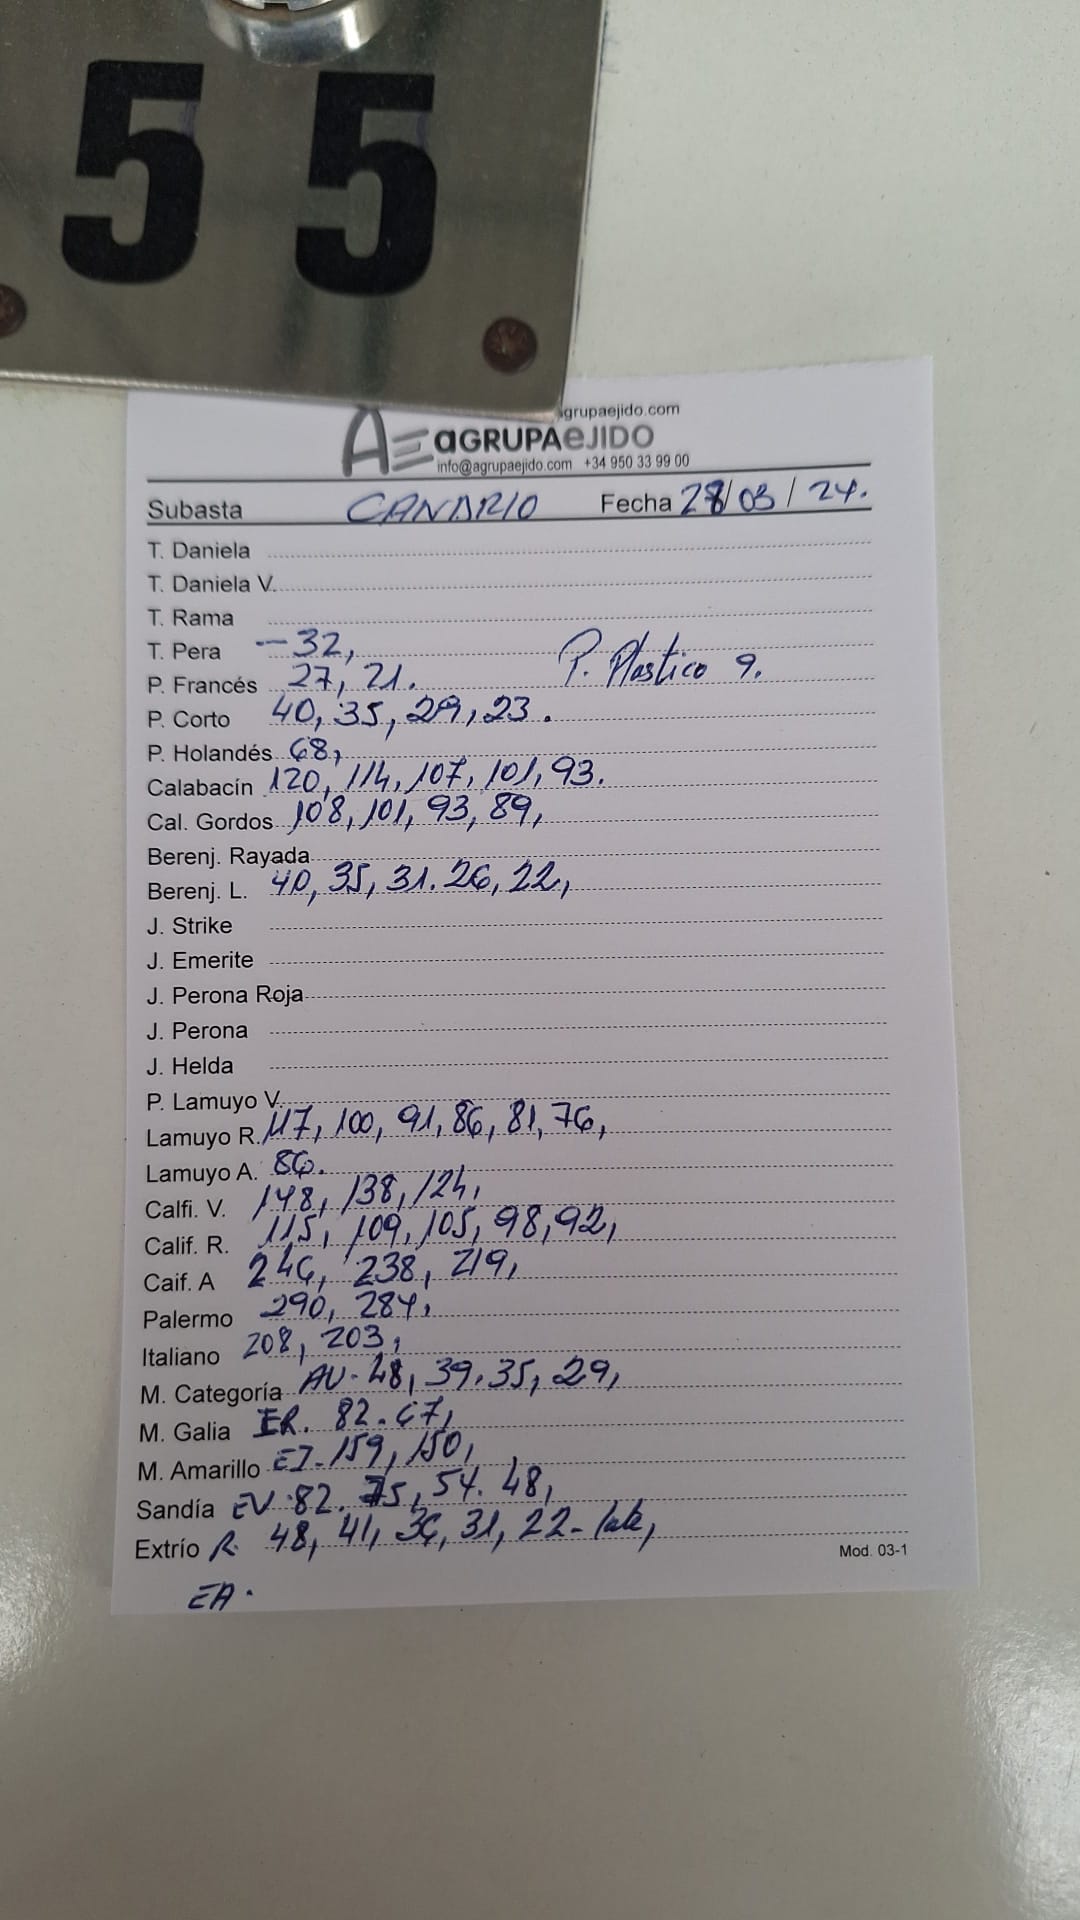 55
grupaejido.com
AE aGRUPAeJIDO
info@agrupaejido.com +34 950 33 99 00
Subasta CANARIO Fecha 28/03/24.
T. Daniela
T. Daniela V.
T. Rama
T. Pera -32,
P. Francés 27, 21. P. Plastico 9.
P. Corto 40, 35, 29, 23.
P. Holandés 68,
Calabacín 120, 114, 107, 101, 93.
Cal. Gordos 108, 101, 93, 89,
Berenj. Rayada
Berenj. L. 40, 35, 31. 26, 22,
J. Strike
J. Emerite
J. Perona Roja
J. Perona
J. Helda
P. Lamuyo V.
Lamuyo R. 117, 100, 91, 86, 81, 76,
Lamuyo A. 86.
Calfi. V. 148, 138, 124,
Calif. R. 115, 109, 105, 98, 92,
Caif. A 246, 238, 219,
Palermo 290, 284,
Italiano 208, 203,
M. Categoría AV. 48, 39, 35, 29,
M. Galia ER. 82. 67,
M. Amarillo EJ- 159, 150,
Sandía EV. 82. 75, 54. 48,
Extrío R. 48, 41, 36, 31, 22-
Mod. 03-1
EA.